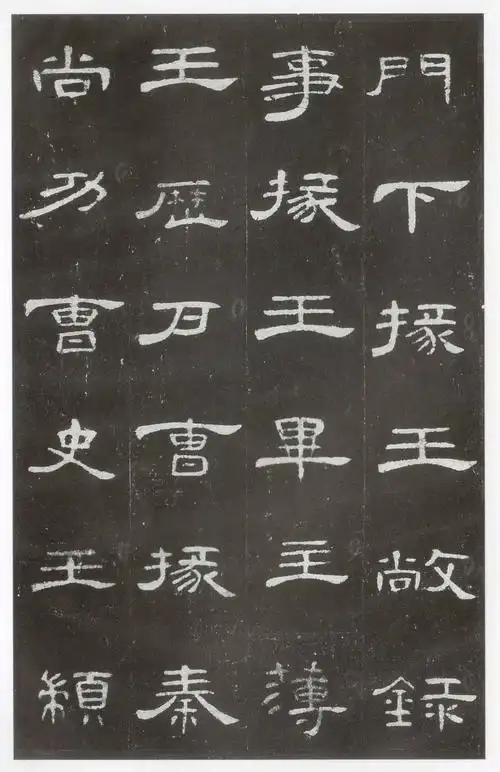 門下掾王敞錄
事掾王畢主薄
王歷戶曹掾秦
尚功曹史王顓